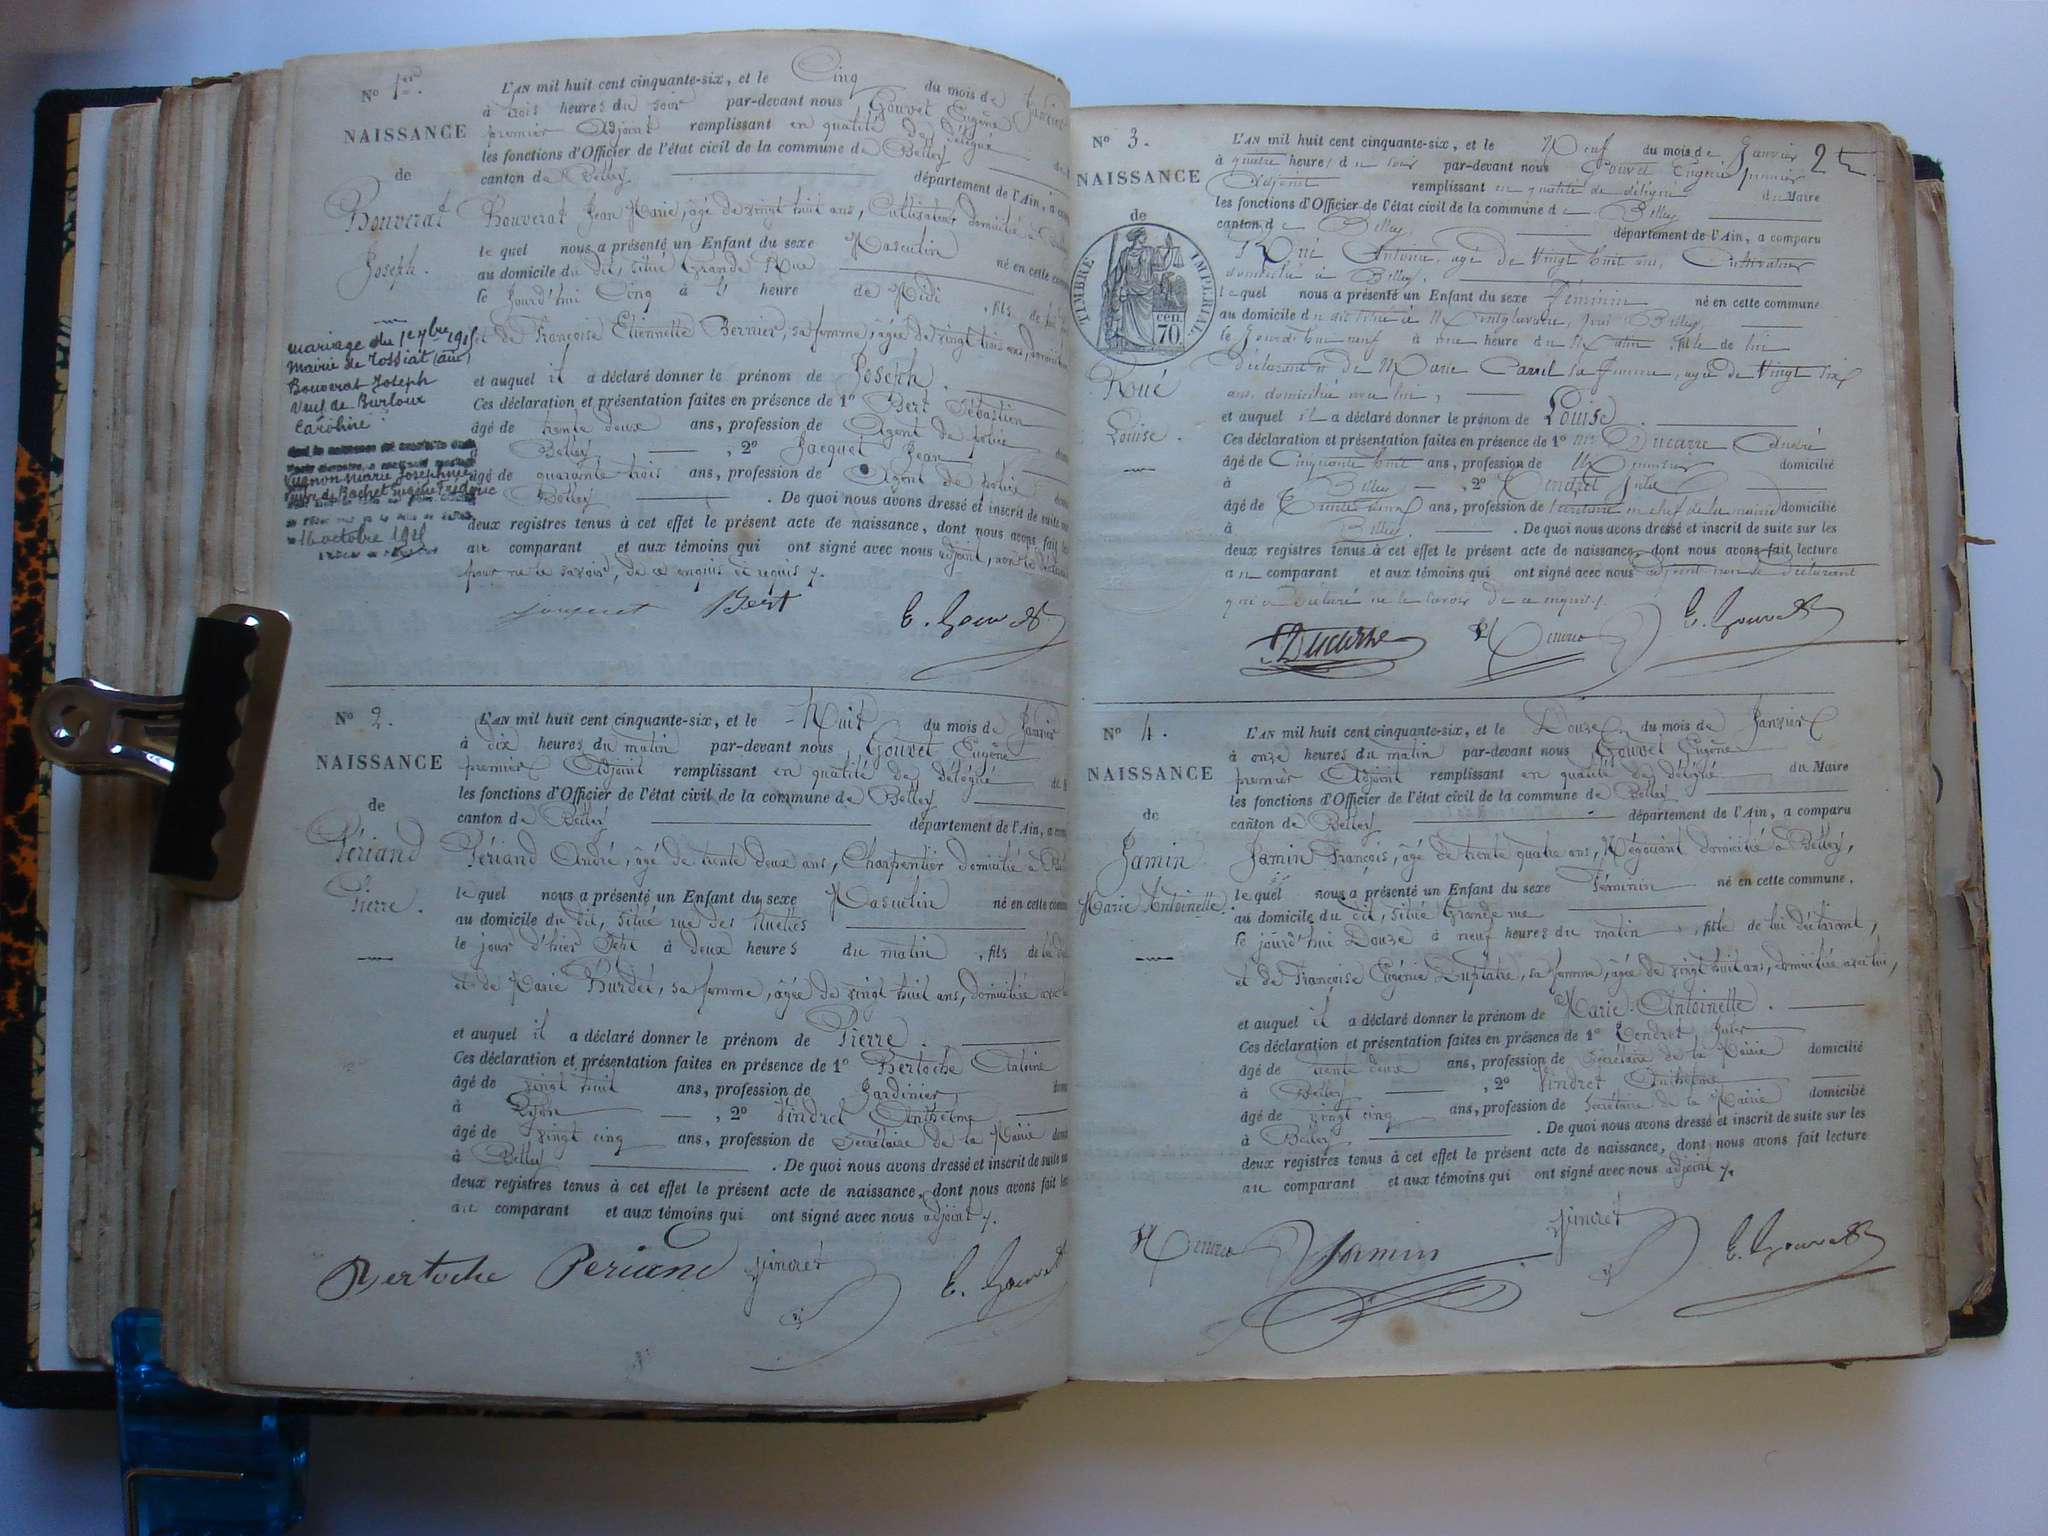 No 1er.
L'AN mil huit cent cinquante-six, et le Cinq du mois de Janvier
à trois heures du soir par-devant nous Gouvet Eugène
NAISSANCE
premier Adjoint remplissant en qualité de délégué
les fonctions d'Officier de l'état civil de la commune de Belley
de
canton de Belley département de l'Ain, a
Bouverat
Bouverat Jean Marie, âgé de vingt huit ans, Cultivateur domicilié à
Joseph.
le quel nous a présenté un Enfant du sexe Masculin
au domicile du dit, situé Grande Rue né en cette
le Jourd'hui Cinq à heure de Midi, fils de
et de Françoise Etiennette Bernier, sa femme, âgée de vingt trois ans,
et auquel il a déclaré donner le prénom de Joseph.
Ces déclaration et présentation faites en présence de 1o Bert Sébastien
âgé de trente deux ans, profession de Agent de police
Belley, 2o Jacquet Jean
âgé de quarante trois ans, profession de Agent de police
Belley. De quoi nous avons dressé et inscrit de suite
deux registres tenus à cet effet le présent acte de naissance, dont nous avons fait
au comparant et aux témoins qui ont signé avec nous adjoint, non le
pour ne le savoir, de ce enquis et requis.
mariage du
Mairie de Tossiat (Ain)
Bouverat Joseph
veuf de Burloux
Caroline
Vugnon Marie Josephine
16 octobre
Bert
E. Gouvet
No 2.
L'AN mil huit cent cinquante-six, et le Huit du mois de Janvier
à dix heures du matin par-devant nous Gouvet Eugène
NAISSANCE
premier Adjoint remplissant en qualité de délégué
les fonctions d'Officier de l'état civil de la commune de Belley
de
canton de Belley département de l'Ain, a
Périand
Périand André, âgé de trente deux ans, Charpentier domicilié à
Pierre.
le quel nous a présenté un Enfant du sexe Masculin né en cette
au domicile du dit, situé rue des
le jour d'hier Sept à deux heures du matin, fils de
et de Marie Burdet, sa femme, âgée de vingt huit ans, domiciliée
et auquel il a déclaré donner le prénom de Pierre.
Ces déclaration et présentation faites en présence de 1o Bertoche Antoine
âgé de vingt huit ans, profession de Jardinier,
à Lyon, 2o Vindret Anthelme
âgé de vingt cinq ans, profession de Secrétaire de la Mairie
à Belley. De quoi nous avons dressé et inscrit de suite
deux registres tenus à cet effet le présent acte de naissance, dont nous avons fait
au comparant et aux témoins qui ont signé avec nous adjoint.
Bertoche Periand Vindret E. Gouvet
2
No 3.
L'AN mil huit cent cinquante-six, et le Neuf du mois de Janvier
à quatre heures du soir par-devant nous Gouvet Eugène premier
NAISSANCE
Adjoint remplissant en qualité de délégué du Maire
les fonctions d'Officier de l'état civil de la commune de Belley
de
canton de Belley département de l'Ain, a comparu
TIMBRE IMPERIAL
70
cen.
Roué Antoine, âgé de Vingt huit ans, Cultivateur
domicilié à Belley,
le quel nous a présenté un Enfant du sexe Féminin né en cette commune
au domicile du dit situé à Belley,
le Jourd'hui neuf à une heure du Matin, fille de lui
Roué
Louise.
déclarant et de Marie Carrel sa Femme, âgée de Vingt six
ans, domiciliée avec lui,
et auquel il a déclaré donner le prénom de Louise.
Ces déclaration et présentation faites en présence de 1o Ducarre André
âgé de Cinquante huit ans, profession de domicilié
à Belley, 2o Vendret Jules
âgé de Trente deux ans, profession de secrétaire en chef de la mairie domicilié
à Belley. De quoi nous avons dressé et inscrit de suite sur les
deux registres tenus à cet effet le présent acte de naissance, dont nous avons fait lecture
au comparant et aux témoins qui ont signé avec nous adjoint non le déclarant
qui a déclaré ne le savoir de ce enquis.
Ducarre E. Gouvet
No 4.
L'AN mil huit cent cinquante-six, et le Douze du mois de Janvier
à onze heures du matin par-devant nous Gouvet Eugène
NAISSANCE
premier Adjoint remplissant en qualité de délégué du Maire
les fonctions d'Officier de l'état civil de la commune de Belley
de
canton de Belley département de l'Ain, a comparu
Jamin
Jamin François, âgé de trente quatre ans, Négociant domicilié à Belley,
Marie Antoinette.
le quel nous a présenté un Enfant du sexe Féminin né en cette commune,
au domicile du dit, situé Grande rue
le jourd'hui Douze à neuf heures du matin, fille de lui déclarant,
et de Françoise Eugénie, sa femme, âgée de vingt huit ans, domiciliée avec lui,
et auquel il a déclaré donner le prénom de Marie-Antoinette.
Ces déclaration et présentation faites en présence de 1o Vendret Jules
âgé de trente deux ans, profession de Secrétaire de la Mairie domicilié
à Belley, 2o Vindret Anthelme
âgé de vingt cinq ans, profession de Secrétaire de la Mairie domicilié
à Belley. De quoi nous avons dressé et inscrit de suite sur les
deux registres tenus à cet effet le présent acte de naissance, dont nous avons fait lecture
au comparant et aux témoins qui ont signé avec nous adjoint.
Jamin Vindret E. Gouvet